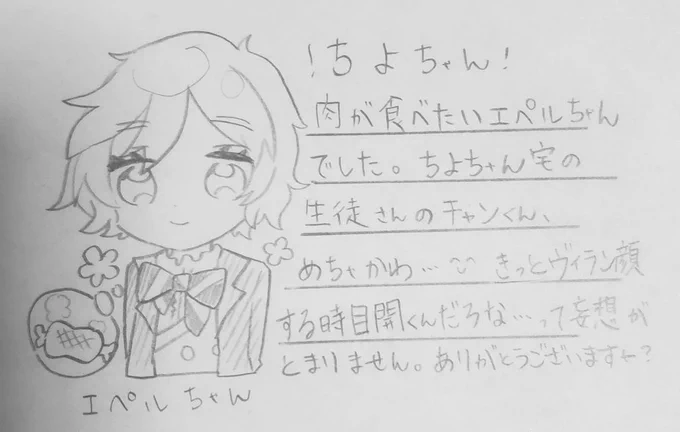 !ちよちゃん!
肉が食べたいエペルちゃん
でした。ちよちゃん宅の
生徒さんのチャンくん、
めちゃかわ… きっとヴィラン顔
する時目開くんだろな…って妄想が
とまりません。ありがとうございますー?
エペルちゃん